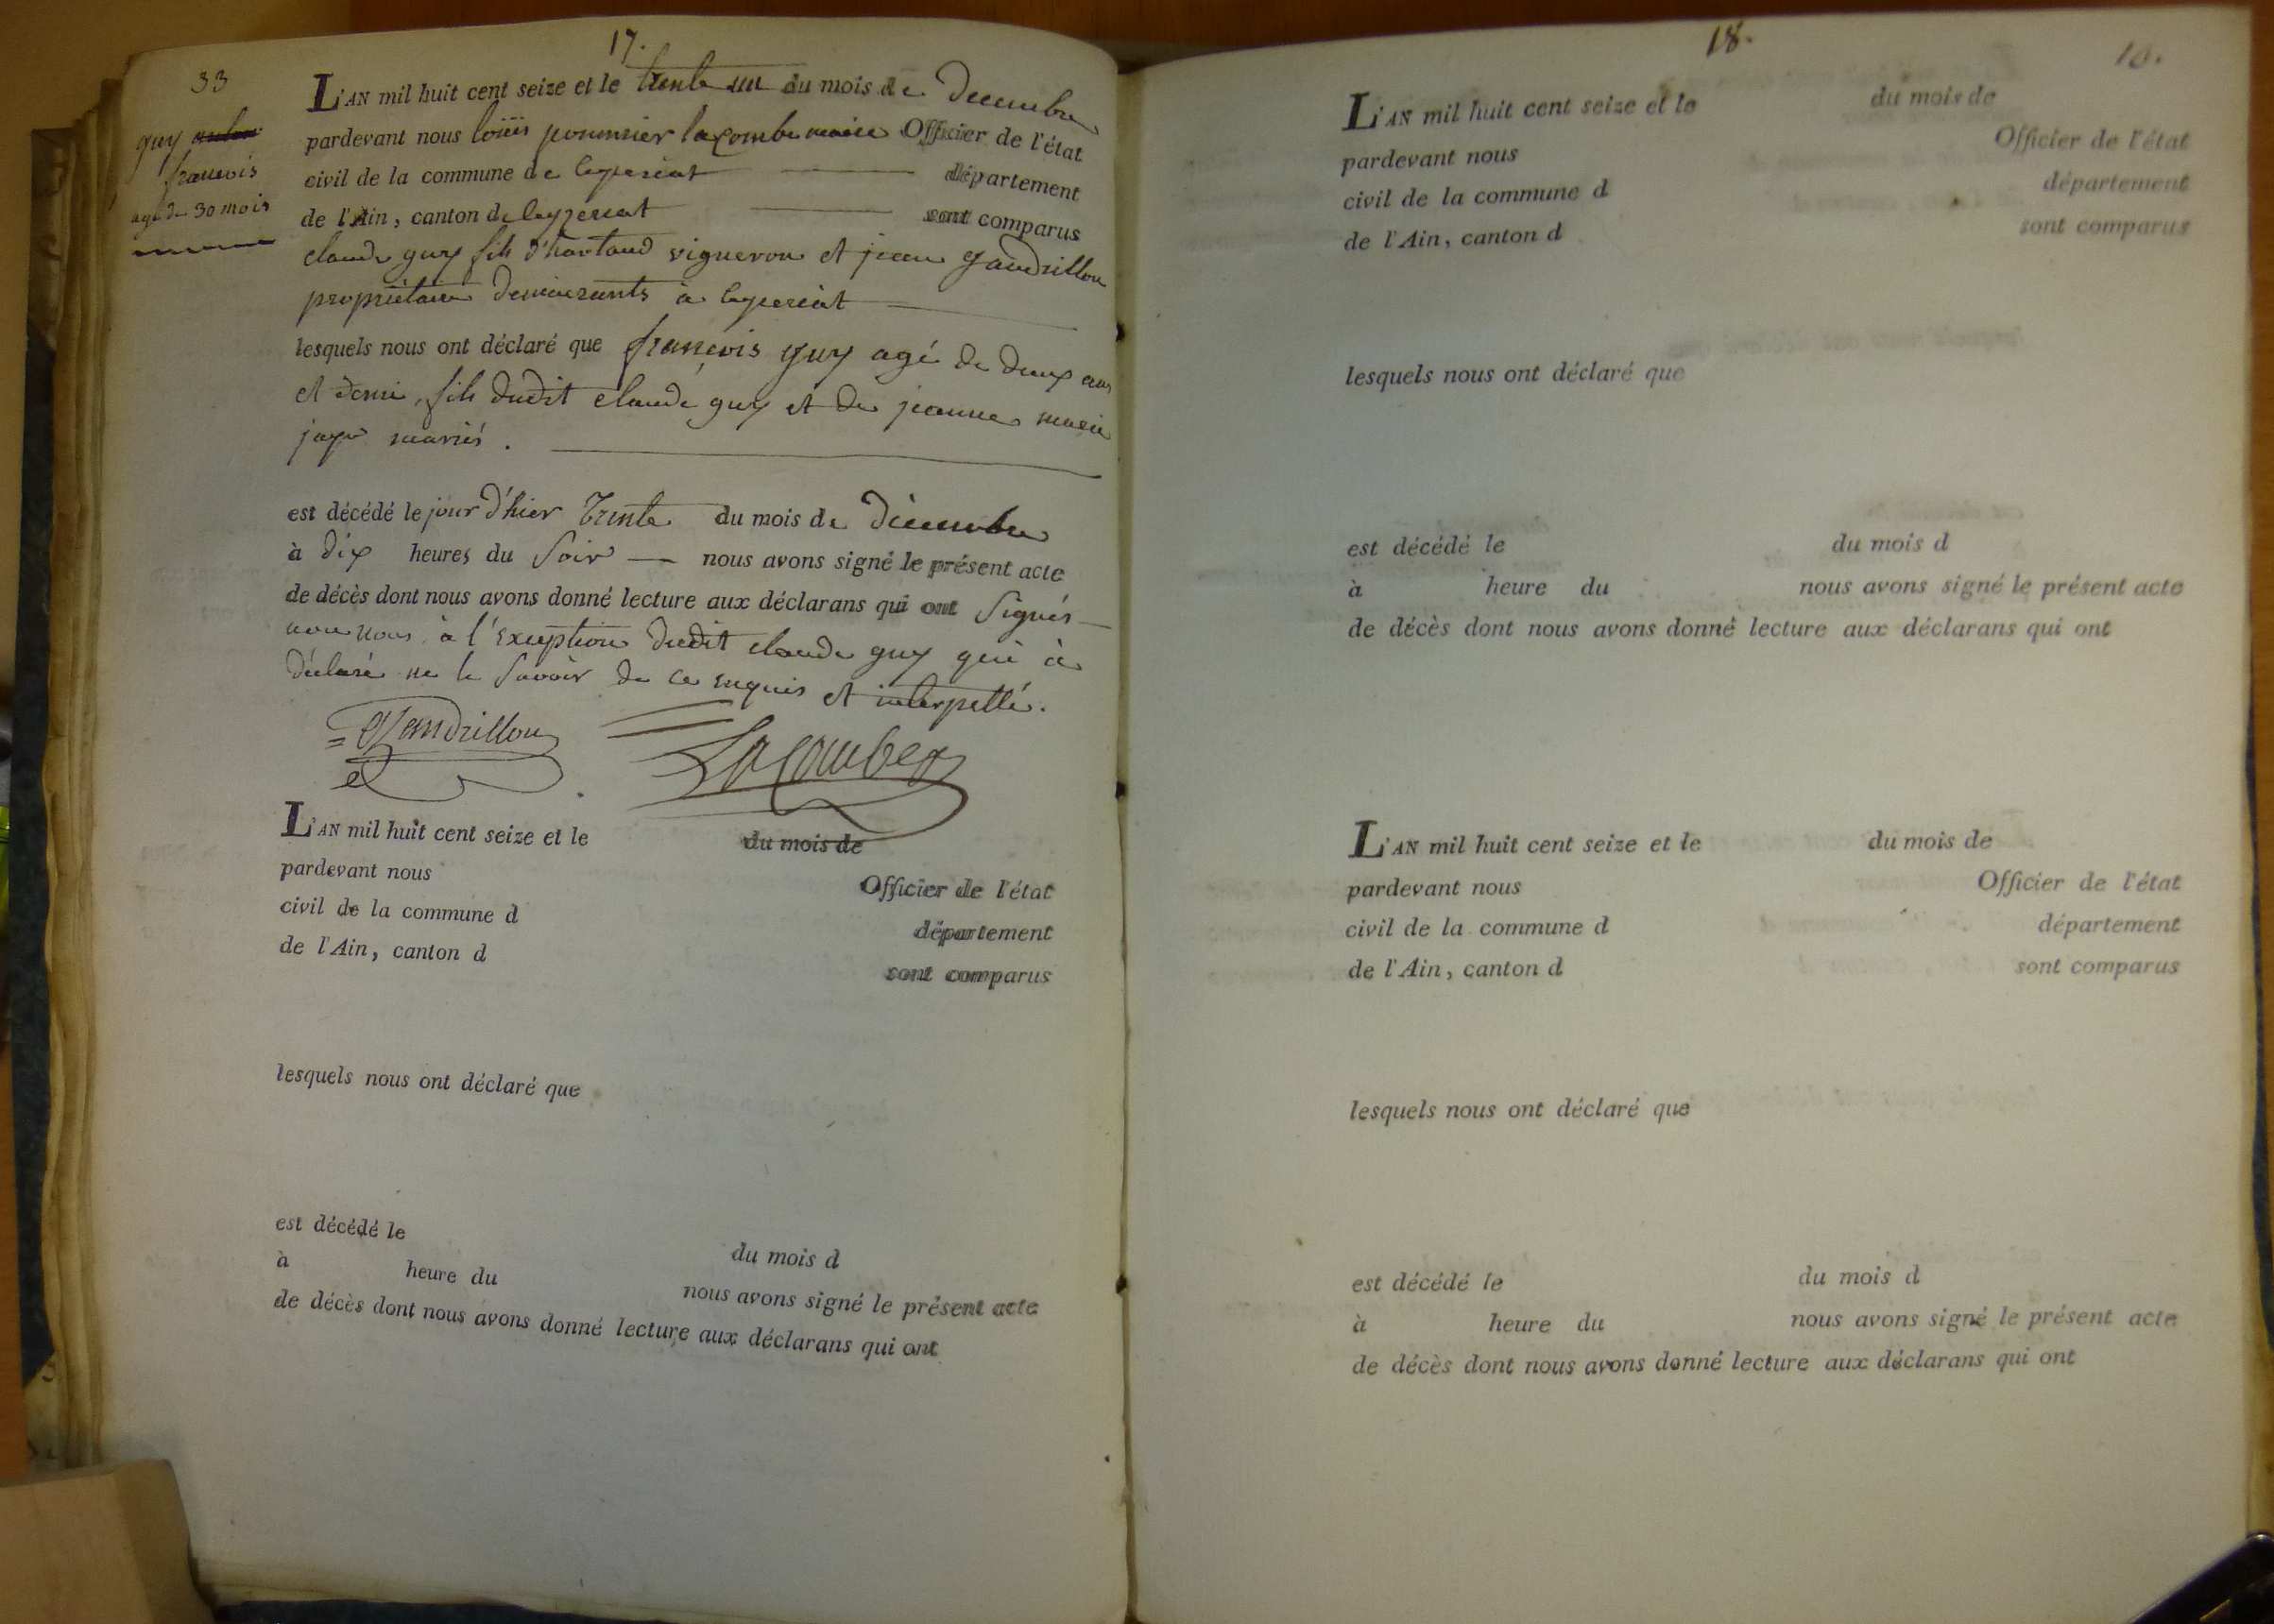 17.
33
guy
francois
agé de 30 mois
L'AN mil huit cent seize et le trente un du mois de Decembre
pardevant nous loüis pommier lacombe maire Officier de l'état
civil de la commune de ceyzeriat département
de l'Ain, canton de ceyzeriat sont comparus
claude guy fils d' vigneron et jean Gandrillon
propriètaire demeurants à ceyzeriat
lesquels nous ont déclaré que françois guy agé de deux ans
et demi, fils dudit claude guy et de jeanne marie
mariés.
est décédé le jour d'hier trente du mois de décembre
à dix heures du soir nous avons signé le présent acte
de décès dont nous avons donné lecture aux déclarans qui ont signés
avec nous à l'exception dudit claude guy qui à
déclaré ne le savoir de ce requis et interpellé.
Gandrillon Lacombe
L'AN mil huit cent seize et le du mois de
pardevant nous Officier de l'état
civil de la commune d département
de l'Ain, canton d sont comparus
lesquels nous ont déclaré que
est décédé le du mois d
à heure du nous avons signé le présent acte
de décès dont nous avons donné lecture aux déclarans qui ont
18.
18.
L'AN mil huit cent seize et le du mois de
pardevant nous Officier de l'état
civil de la commune d département
de l'Ain, canton d sont comparus
lesquels nous ont déclaré que
est décédé le du mois d
à heure du nous avons signé le présent acte
de décès dont nous avons donné lecture aux déclarans qui ont
L'AN mil huit cent seize et le du mois de
pardevant nous Officier de l'état
civil de la commune d département
de l'Ain, canton d sont comparus
lesquels nous ont déclaré que
est décédé le du mois d
à heure du nous avons signé le présent acte
de décès dont nous avons donné lecture aux déclarans qui ont